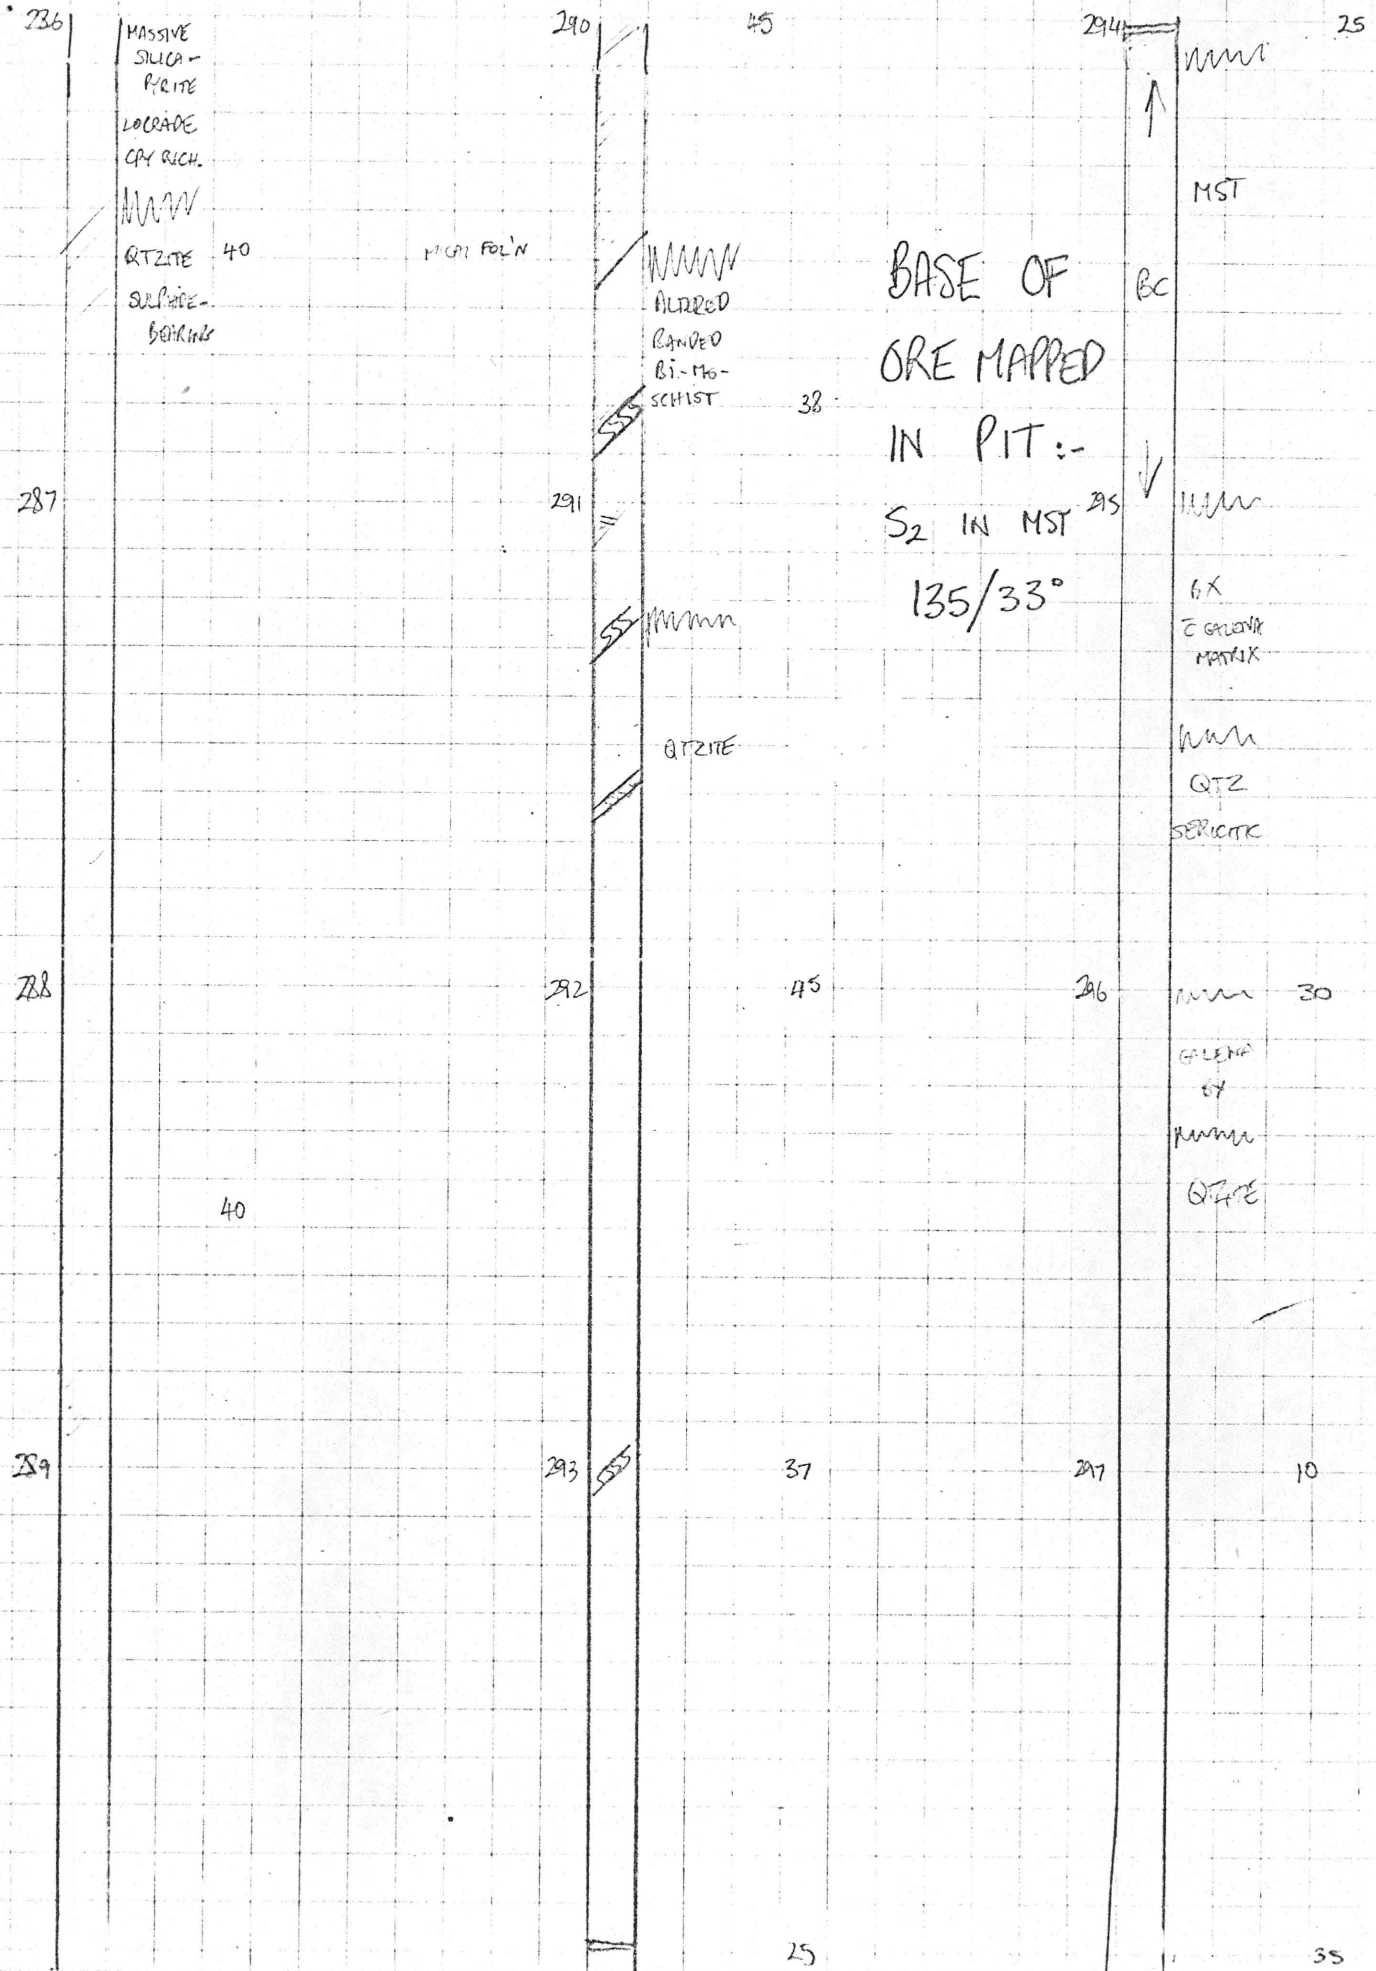 236
MASSIVE
SILICA-
PYRITE
LOGRADE
CPY RICH.
QTZITE 40
SULPHIDE-
BEARING
287
288
40
289
290 45
FOL'N
ALTERED
BANDED
Bi-MG-
SCHIST 38
291
QTZITE
292 45
293 37
25
BASE OF
ORE MAPPED
IN PIT :-
S2 IN MST
135/33°
294 25
MST
BC
295
BX
C̄ GALENA
MATRIX
QTZ
SERICITIC
296 30
GALENA
BX
QTZITE
297 10
35